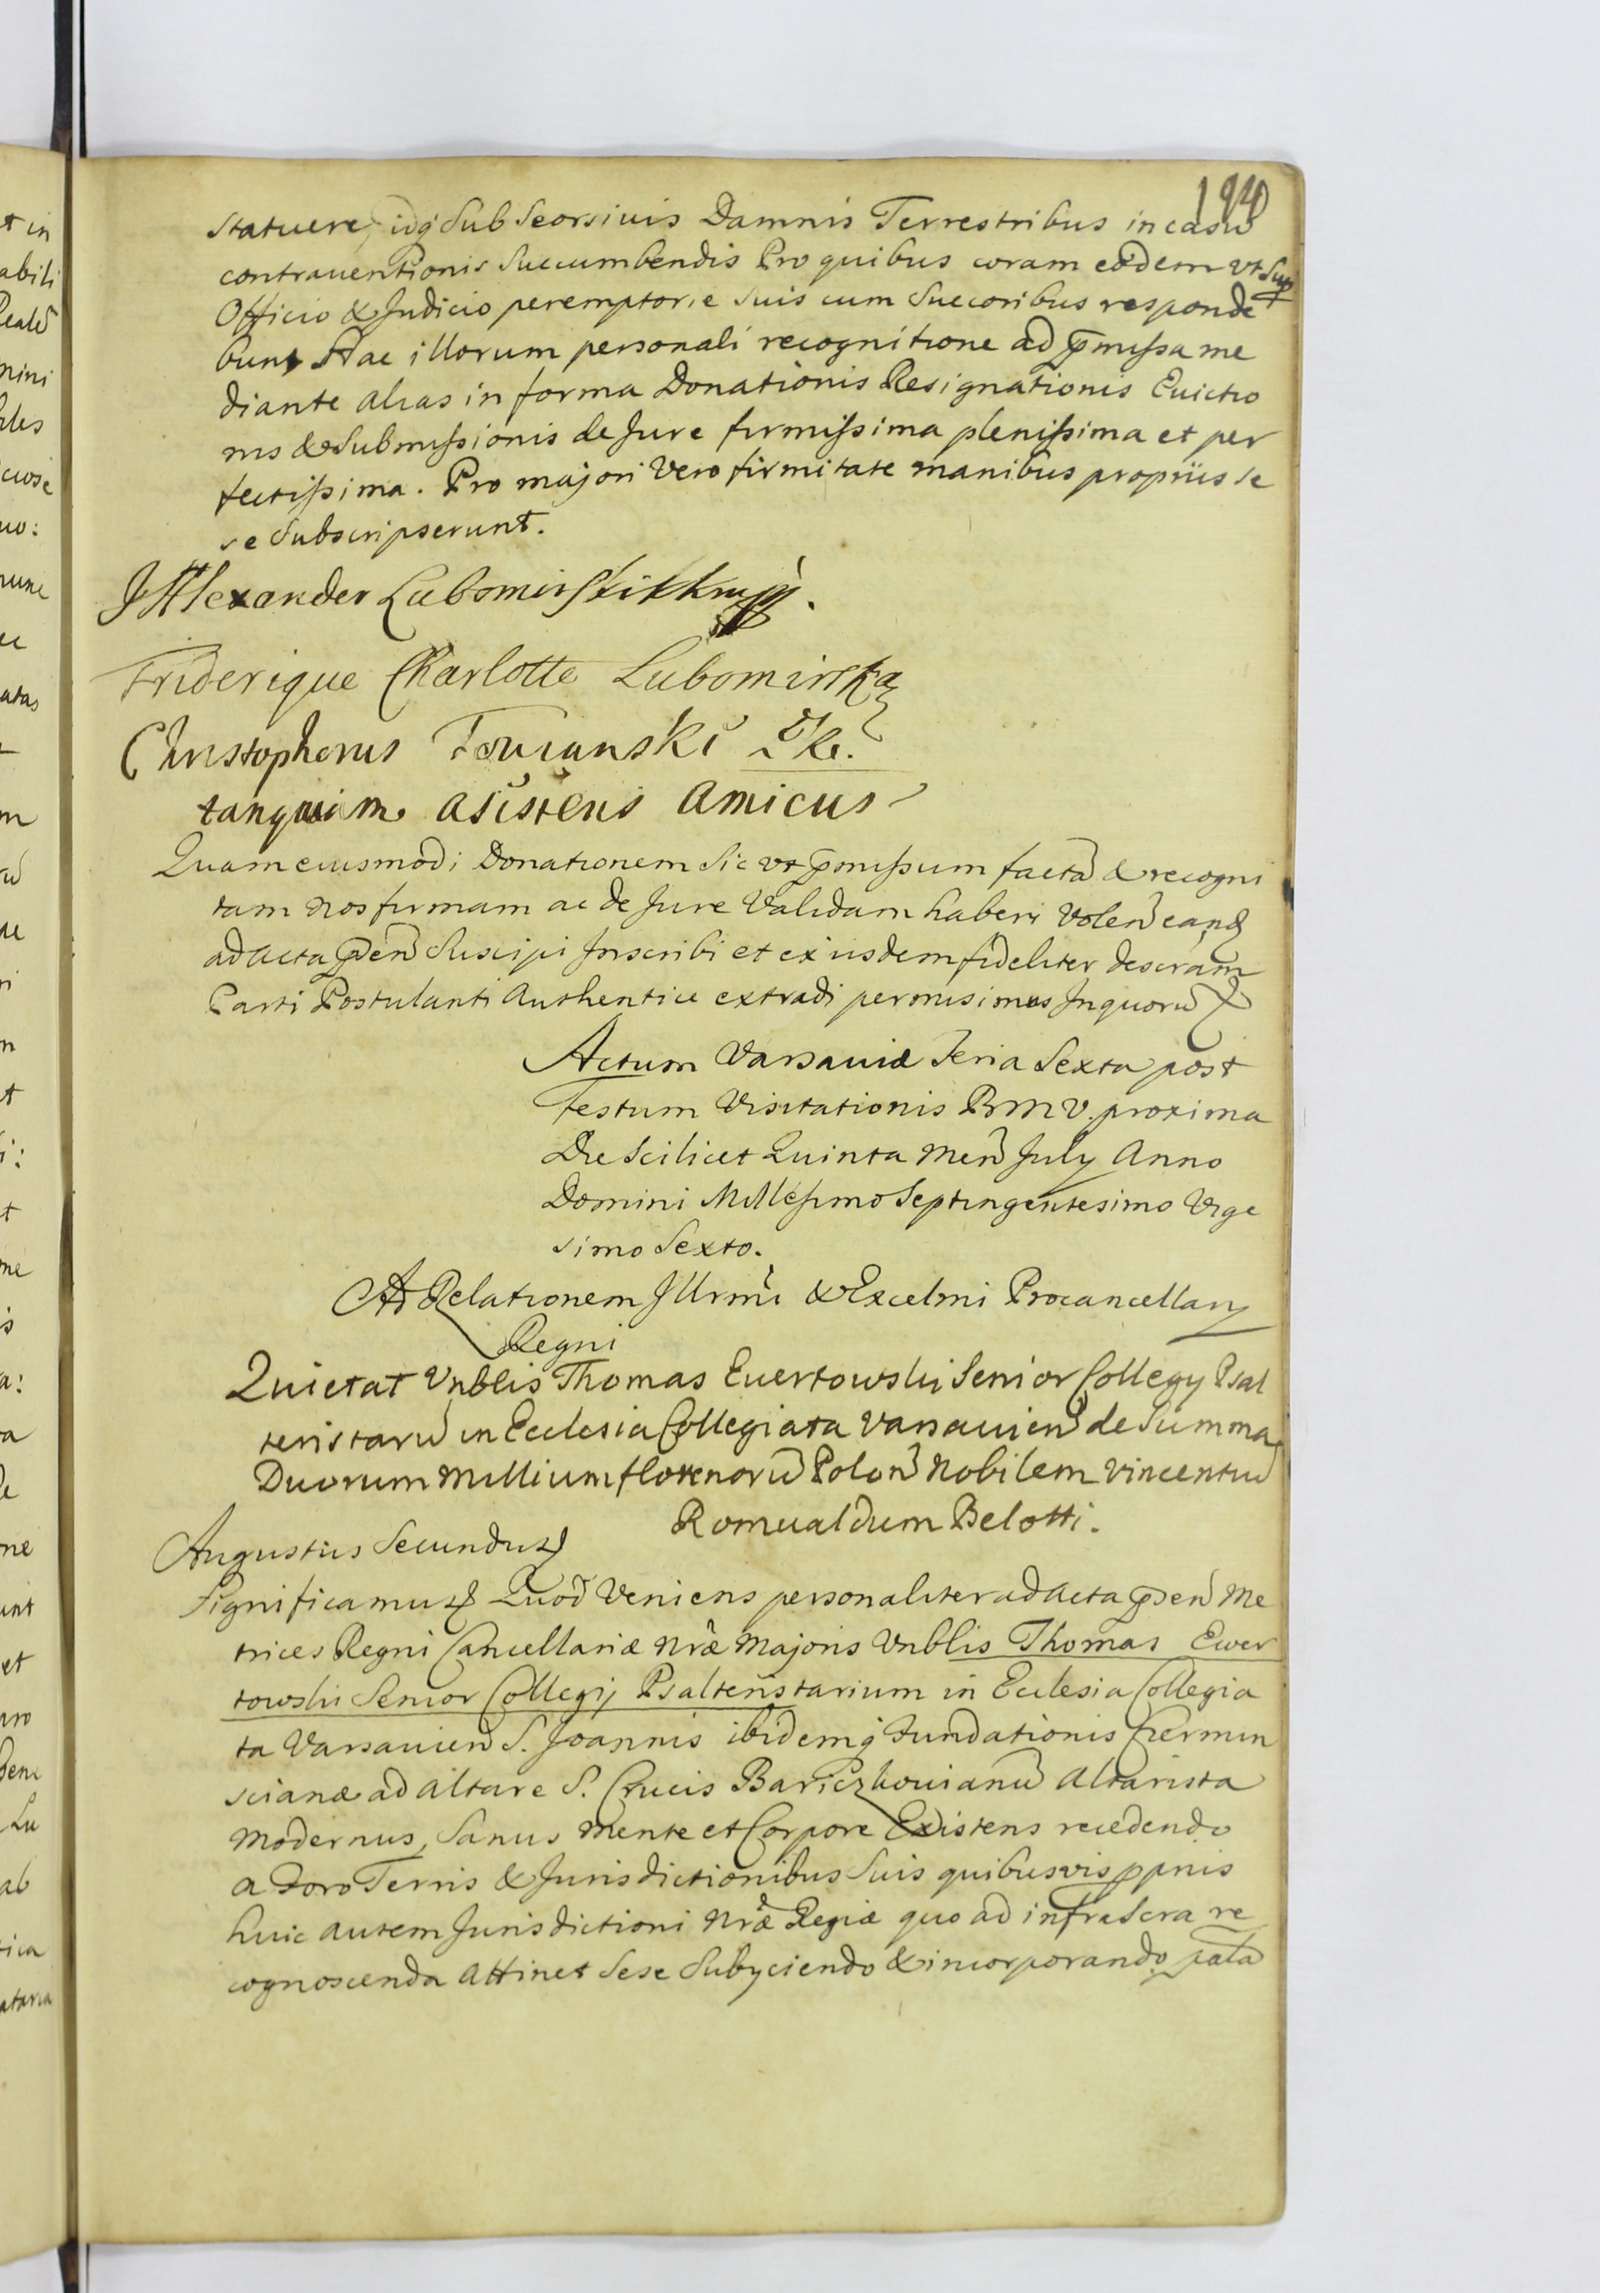 194
statuere, idq̃ Sub Seorsivis Damnis Terrestribus in casu
contraventionis Succumbendis Pro quibus coram eodem vt Sup
Officio & Judicio peremptorie suis cum Succoribus responde
bunt Hac illorum personali recognitione ad p̃missa me
diante alias in forma Donationis Resignationis Evictio
nis & Submissionis de Jure firmissima plenissima et per
fectissima. Pro majori vero firmitate manibus propriis se
se Subscripserunt.
J Alexander Lubomirski
Friderique Charlotte Lubomirska
Christophorus
tanquam asistens amicus
Quam eiusmodi Donationem sic vt p̃missum factã & recogni
tam nos firmam ac de Jure Validam haberi Volen̄ eand
ad Acta p̃sen̄ Suscipi Inscribi et ex iisdem fideliter descram
Parti Postulanti Authentice extradi permisimus In quorũ
Actum Varsaviæ Feria Sexta post
Festum Visitationis B M V. proxima
Die Scilicet Quinta Men̄ July Anno
Domini Millesimo Septingentesimo Vige
simo Sexto.
Ad Relationem Illrmi & Excelmi Procancellary
Regni
Quietat Vnblis Thomas Evertowski Senior Collegy Psal
teristarũ in Ecclesia Collegiata Varsavien̄ de Summa
Duorum Millium florenorũ Polon̄ Nobilem Vincentiũ
Romualdum Belotti.
Augustus Secundus
Significamus Quod Veniens personaliter ad Acta p̃sen̄ Me
trices Regni Cancellariæ nr̃æ Majoris Vnblis Thomas Ewer
towski Senior Collegij Psalteristarium in Ecclesia Collegia
ta Varsavien̄ S. Joannis ibidemq̃ Fundationis Czermin
scianæ ad altare S. Crucis Bariczkovianũ Altarista
Modernus, Sanus Mente et Corpore Existens recedendo
a Foro Terris & Jurisdictionibus Suis quibusvis pprijs
huic autem Jurisdictioni Nr̃æ Regiæ quo ad infrascra re
cognoscenda Attinet Sese Subyciendo & incorporando, palã